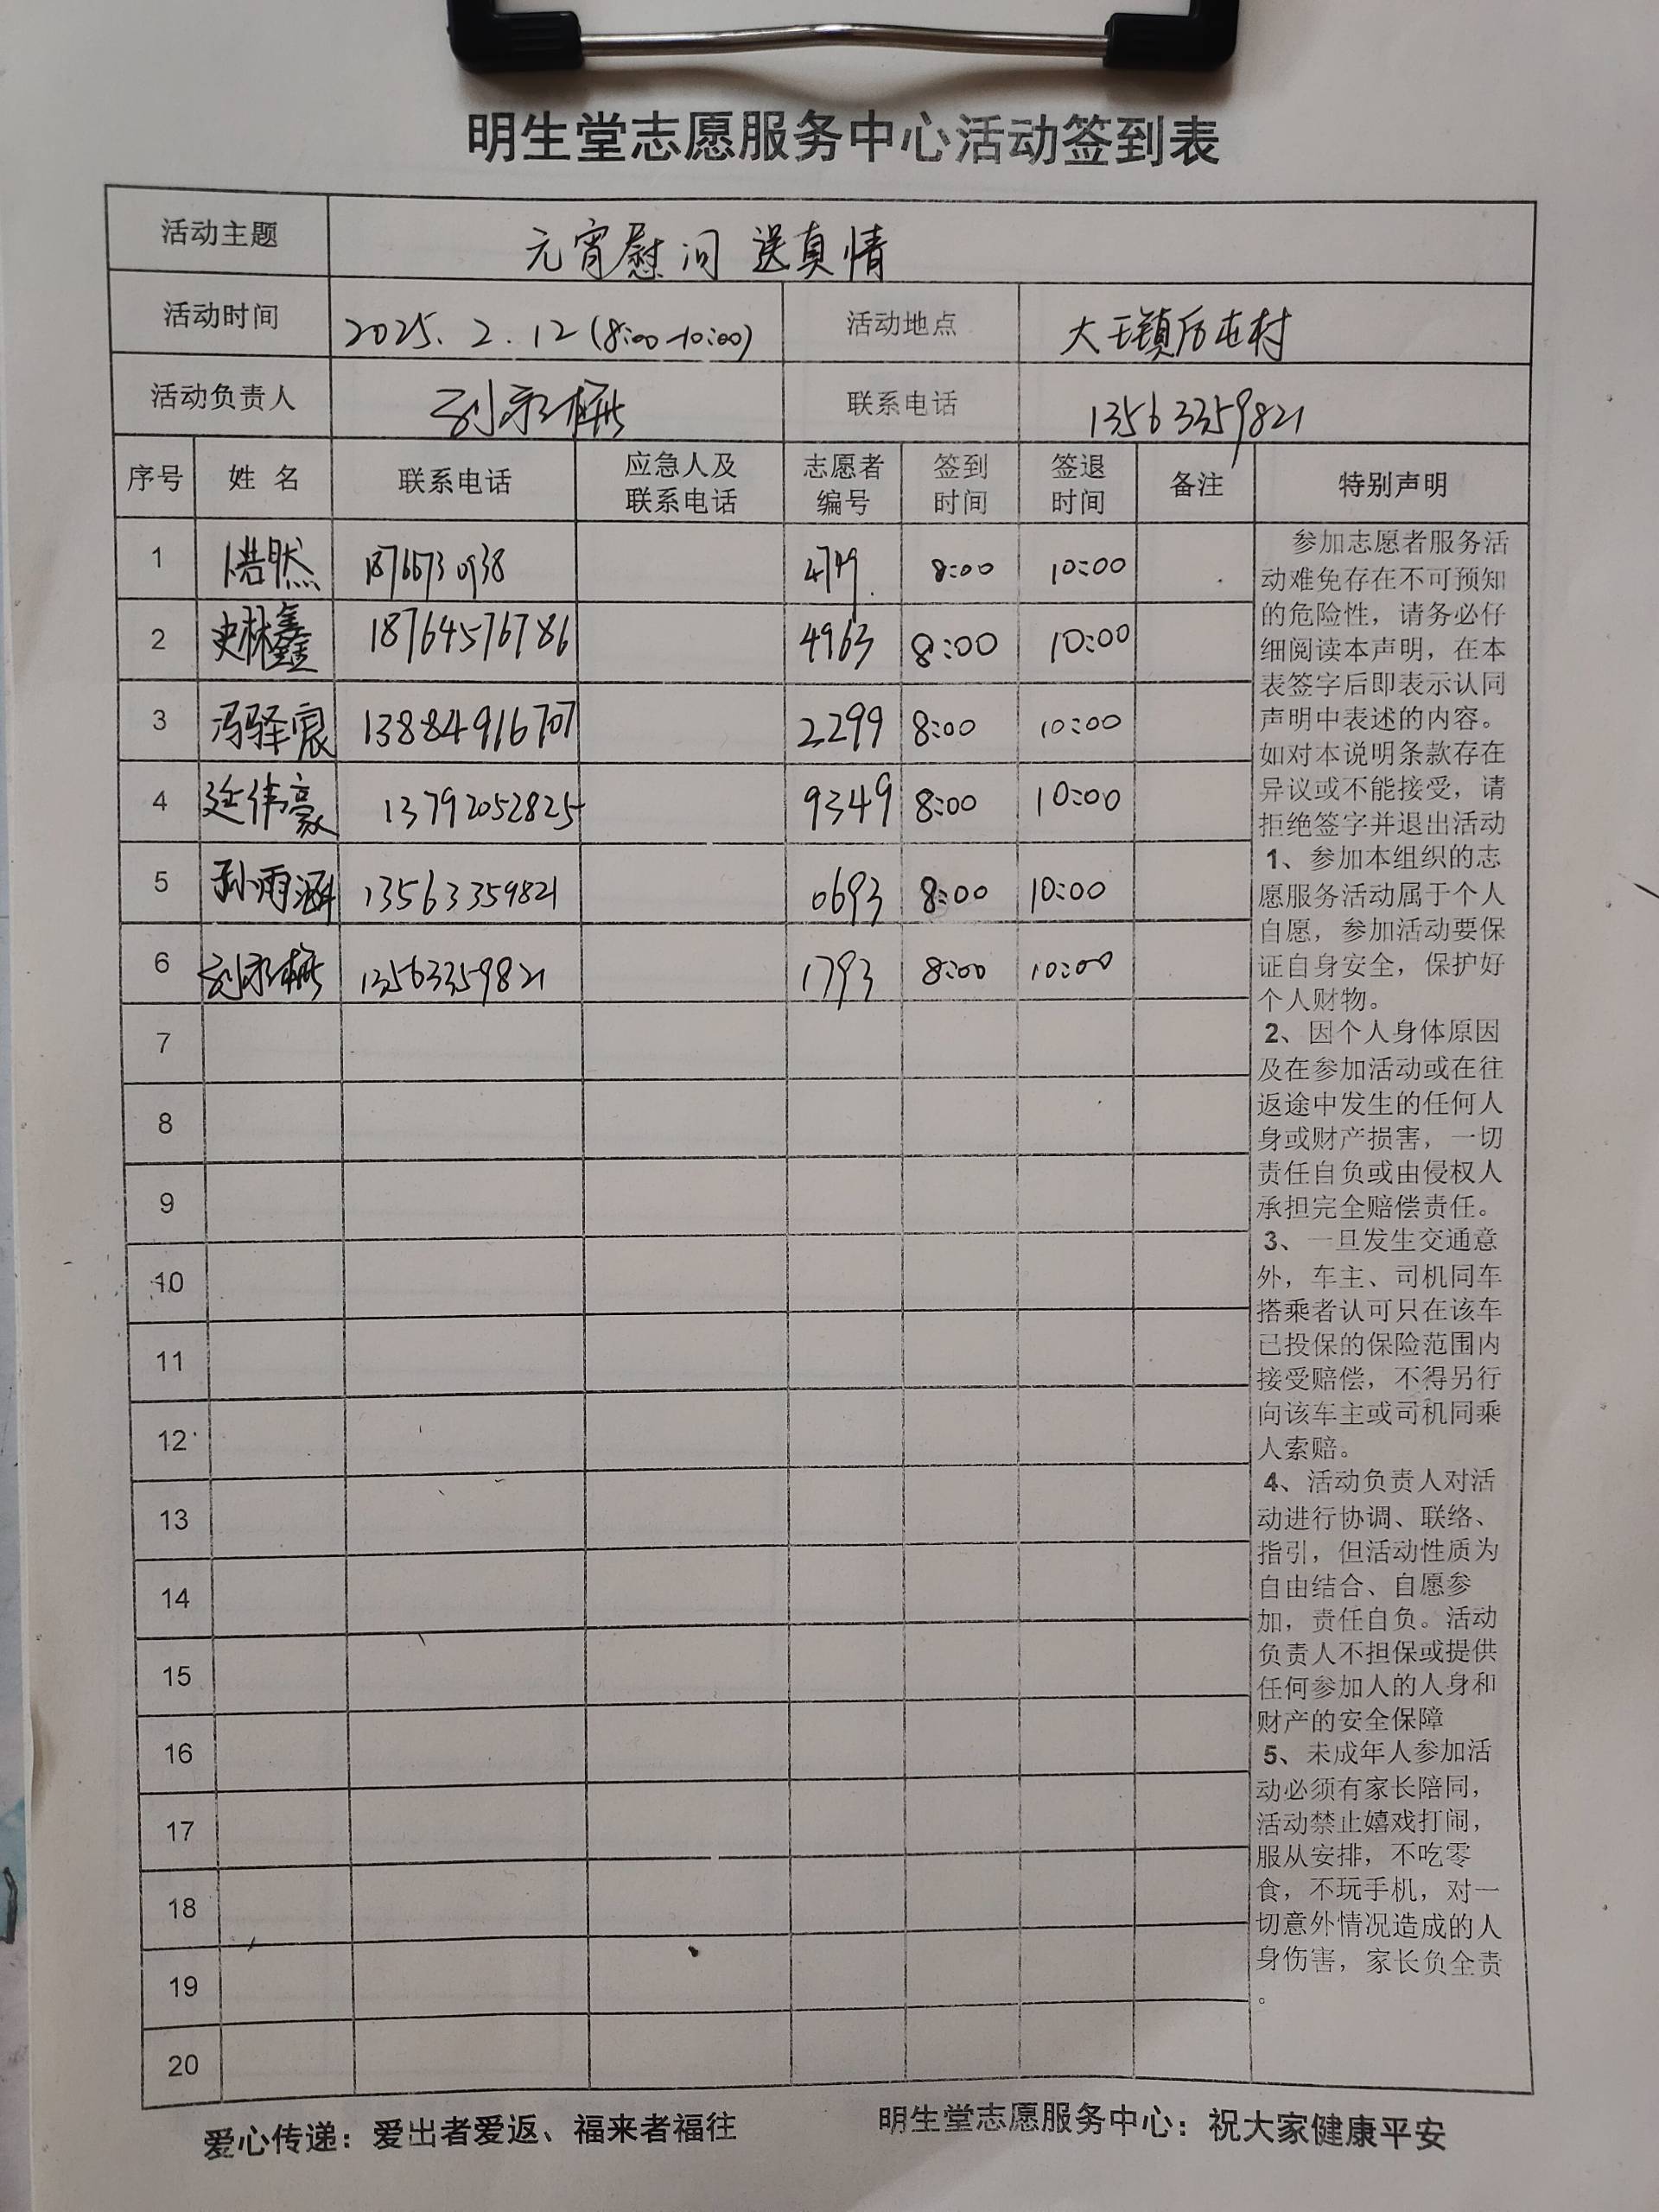 明生堂志愿服务中心活动签到表
活动主题 元宵慰问 送真情
活动时间 2025.2.12(8:00-10:00) 活动地点 大王镇后屯村
活动负责人 联系电话 13563359821
序号 姓名 联系电话 应急人及联系电话 志愿者编号 签到时间 签退时间 备注 特别声明
1 4749 8:00 10:00
2 史林鑫 18764576786 4963 8:00 10:00
3 冯驿宸 13884916707 2299 8:00 10:00
4 延伟豪 13792052825 9349 8:00 10:00
5 孙雨涵 13563359821 0693 8:00 10:00
6 13563359821 1793 8:00 10:00
7
8
9
10
11
12
13
14
15
16
17
18
19
20
参加志愿者服务活
动难免存在不可预知
的危险性，请务必仔
细阅读本声明，在本
表签字后即表示认同
声明中表述的内容。
如对本说明条款存在
异议或不能接受，请
拒绝签字并退出活动
1、参加本组织的志
愿服务活动属于个人
自愿，参加活动要保
证自身安全，保护好
个人财物。
2、因个人身体原因
及在参加活动或在往
返途中发生的任何人
身或财产损害，一切
责任自负或由侵权人
承担完全赔偿责任。
3、一旦发生交通意
外，车主、司机同车
搭乘者认可只在该车
已投保的保险范围内
接受赔偿，不得另行
向该车主或司机同乘
人索赔。
4、活动负责人对活
动进行协调、联络、
指引，但活动性质为
自由结合、自愿参
加，责任自负。活动
负责人不担保或提供
任何参加人的人身和
财产的安全保障
5、未成年人参加活
动必须有家长陪同，
活动禁止嬉戏打闹，
服从安排，不吃零
食，不玩手机，对一
切意外情况造成的人
身伤害，家长负全责
。
爱心传递：爱出者爱返、福来者福往 明生堂志愿服务中心：祝大家健康平安